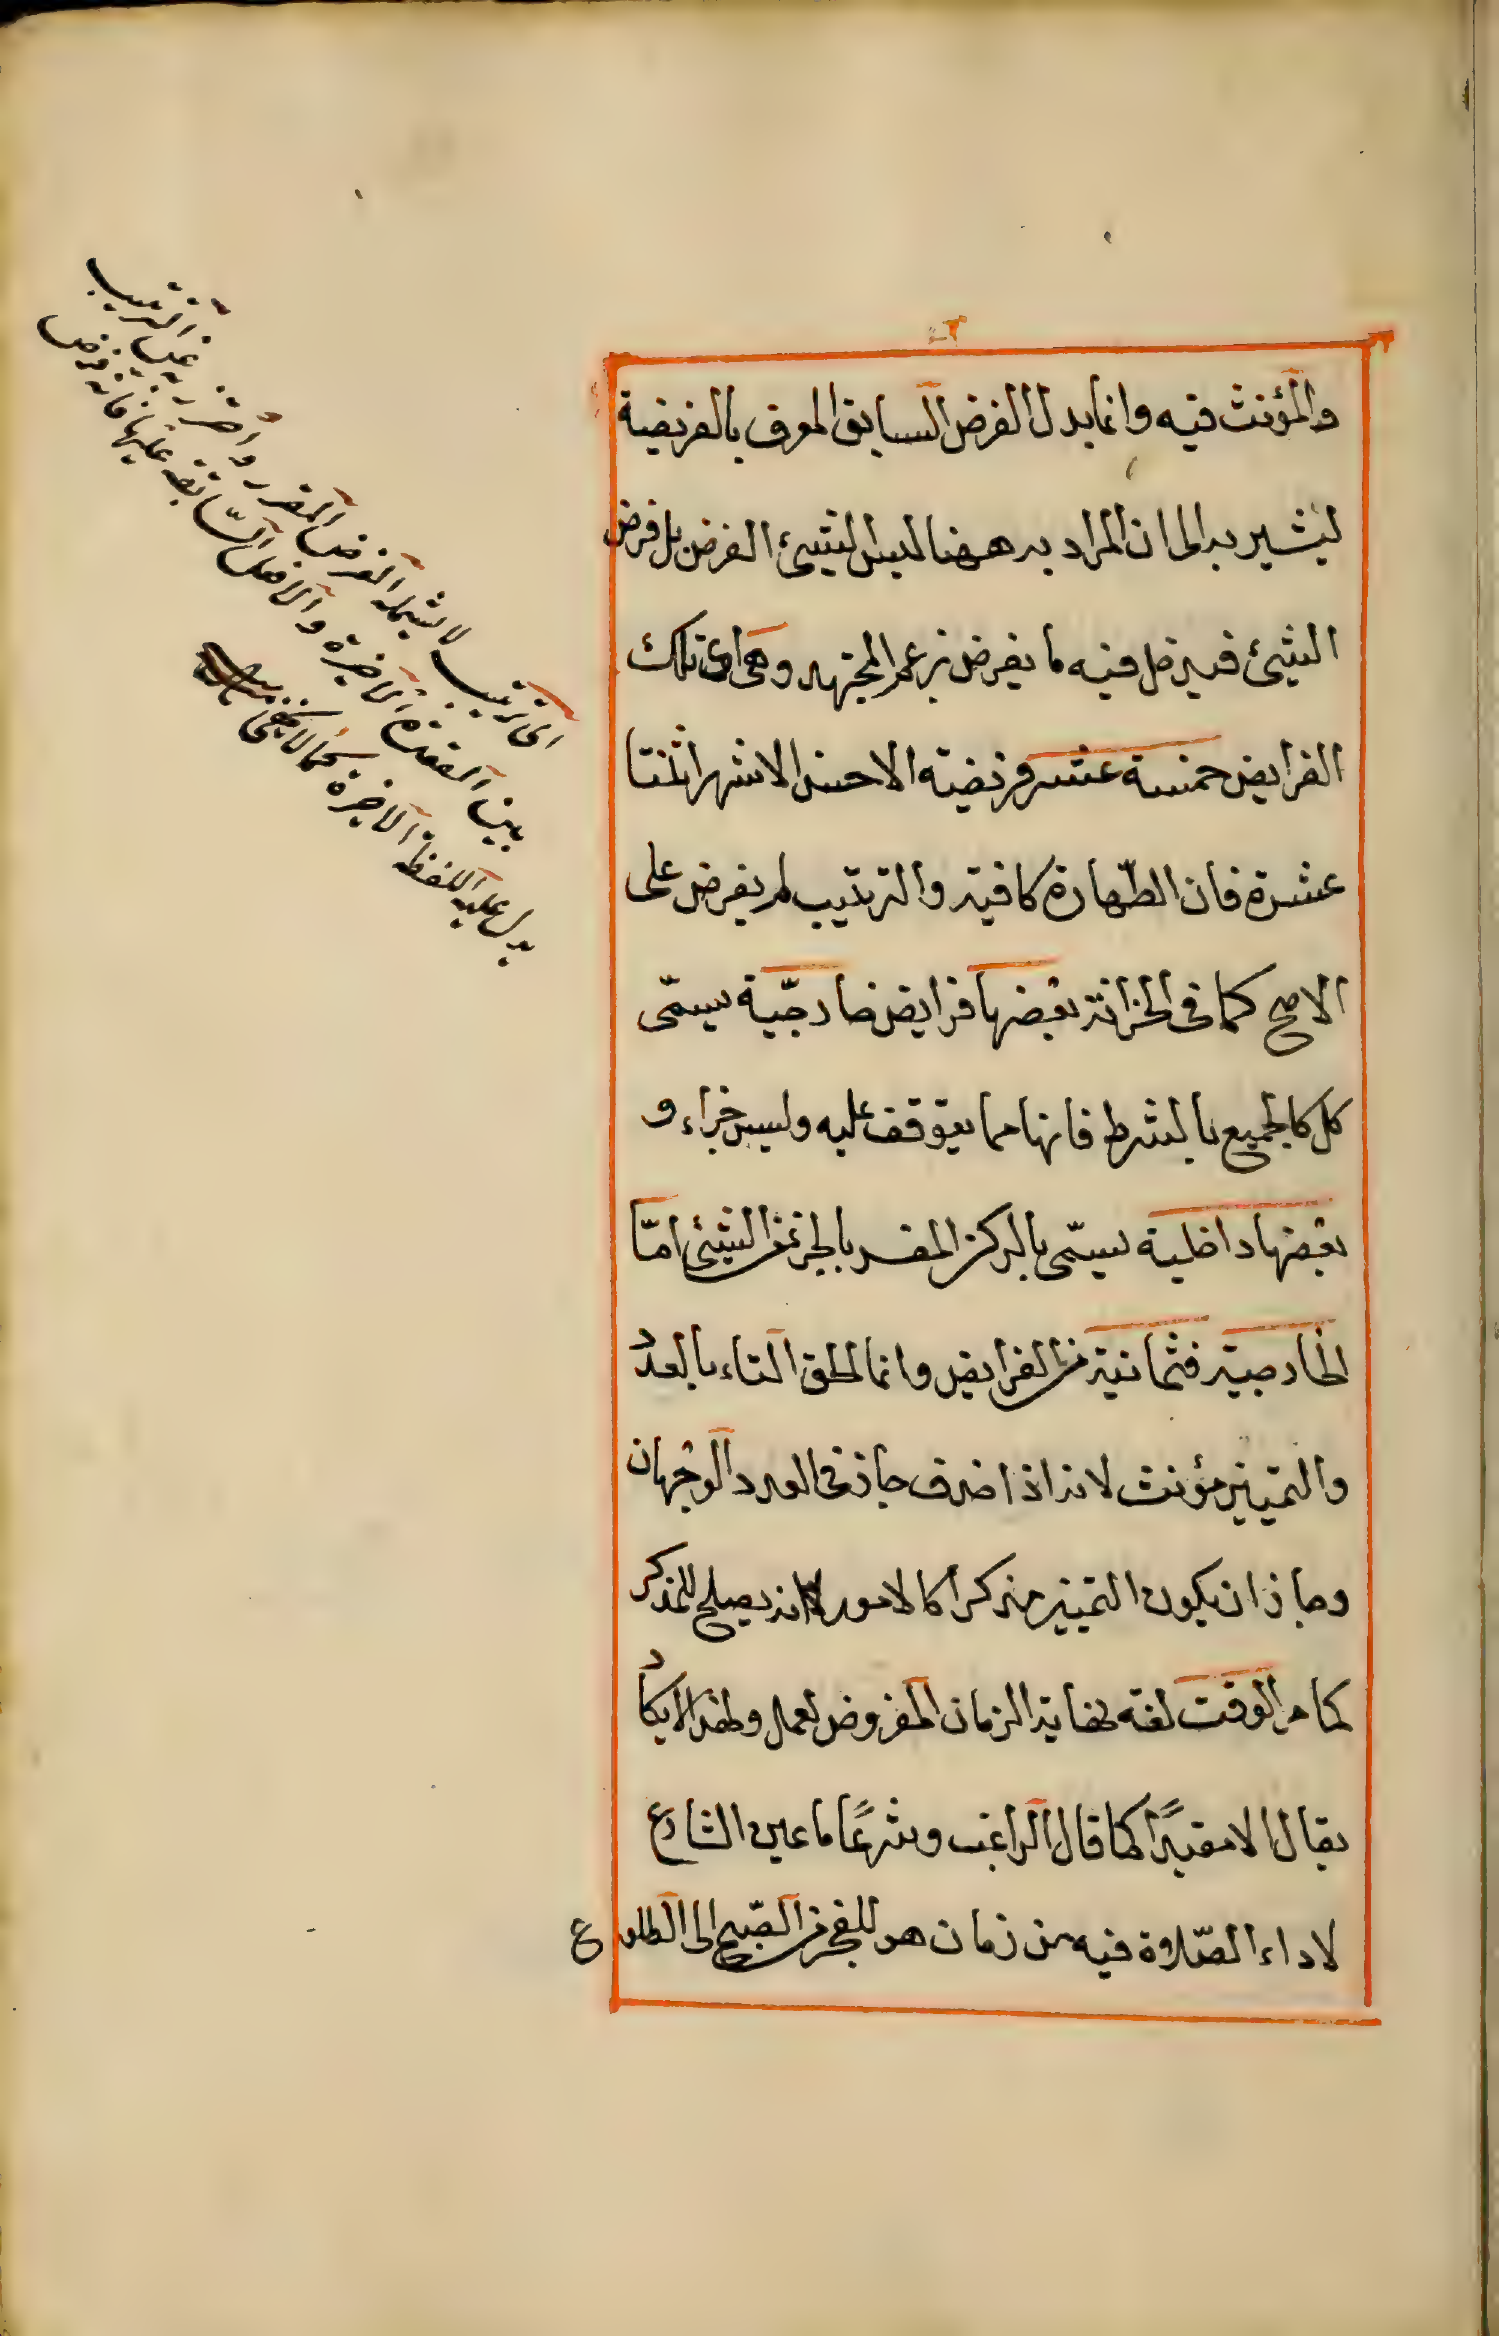 والمؤنث فيه وانما بدل الفرض السابق المعرف بالفريضة
ليشير به الى ان المراد به ههنا ليس لشيئ الفرض بل فرض
الشيئ فيدخل فيه ما يفرض بزعم المجتهد وهى اى تلك
الفرايض خمسة عشر فريضة الاحسن الاشهر اثنتا
عشرة فان الطّهارة كافية والترتيب لم يفرض على
الاصح كما فى الخزانة بعضها فرايض خارجيّة يسمّى
كل كالجميع بالشرط فانها مما يتوقف عليه وليس جزاء و
بعضها داخلية يسمّى بالركن المفسر بالجزء من الشيئ امّا
الخارجية فثمانية من الفرايض وانما الحق التاء بالعدد
والتمييز مؤنث لانه اذا حذف جاز فى العدد الوجهان
وجاز ان يكون التمييز مذكرا كالامور لانه يصلح للمذكر
كما مر الوقت لغة نهاية الزمان المفروض لعمل ولهذا لا يكاد
يقال الا مقيدًا كما قال الراغب وشرعًا ما عين الشارع
لاداء الصّلاوة فيه من زمان هو للفجر من الصّبح الى الطلوع
واحترز به عن الترتيب
لا يشمله الفرض المقرر
اى ترتيب
بين القعدة الاخيرة والافعال السّابقة عليها فانه فرض
يدل عليه اللفظة الاخيرة كما لا يخفى